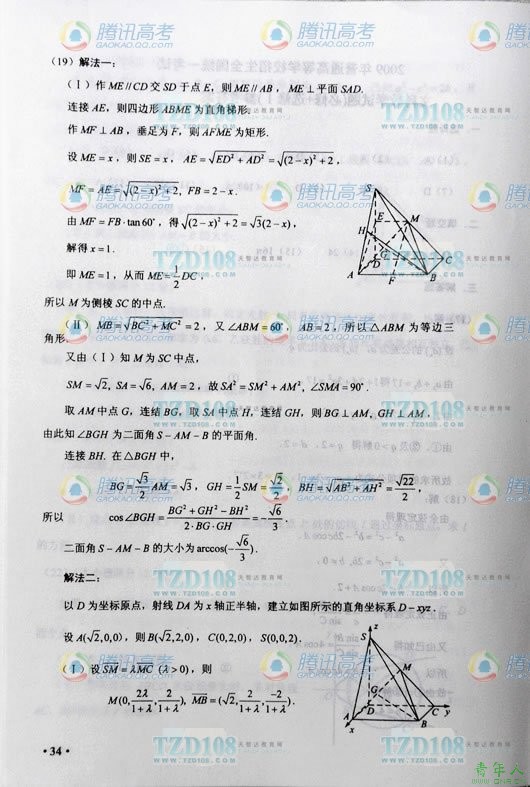 (19) 解法一:
(Ⅰ) 作 ME // CD 交 SD 于点 E, 则 ME // AB , ME ⊥ 平面 SAD.
连接 AE, 则四边形 ABME 为直角梯形.
作 MF ⊥ AB , 垂足为 F, 则 AFME 为矩形.
设 ME = x , 则 SE = x , AE = √(ED² + AD²) = √((2 − x)² + 2) ,
MF = AE = √((2 − x)² + 2), FB = 2 − x .
由 MF = FB · tan 60° , 得 √((2 − x)² + 2) = √3(2 − x) ,
解得 x = 1 .
即 ME = 1 , 从而 ME = 1/2 DC ,
所以 M 为侧棱 SC 的中点.
S
E
M
H
G
D
C
A
F
B
(Ⅱ) MB = √(BC² + MC²) = 2 , 又 ∠ABM = 60° , AB = 2 , 所以 △ABM 为等边三
角形.
又由 (Ⅰ) 知 M 为 SC 中点,
SM = √2, SA = √6, AM = 2 , 故 SA² = SM² + AM² , ∠SMA = 90° .
取 AM 中点 G, 连结 BG, 取 SA 中点 H, 连结 GH, 则 BG ⊥ AM , GH ⊥ AM ,
由此知 ∠BGH 为二面角 S − AM − B 的平面角.
连接 BH. 在 △BGH 中,
BG = √3/2 AM = √3, GH = 1/2 SM = √2/2 , BH = √(AB² + AH²) = √22/2 ,
所以 cos ∠BGH = (BG² + GH² − BH²)/(2 · BG · GH) = −√6/3 .
二面角 S − AM − B 的大小为 arccos(−√6/3) .
解法二:
以 D 为坐标原点, 射线 DA 为 x 轴正半轴, 建立如图所示的直角坐标系 D − xyz .
设 A(√2,0,0) , 则 B(√2,2,0) , C(0,2,0) , S(0,0,2) .
(Ⅰ) 设 SM = λMC (λ > 0) , 则
M(0, 2λ/(1+λ), 2/(1+λ)), MB = (√2, 2/(1+λ), −2/(1+λ)) .
z
S
M
G
D
C
y
A
x
B
· 34 ·
腾讯高考
GAOKAO.QQ.COM
TZD108
天智达教育网
WWW.TZD108.COM
青年人